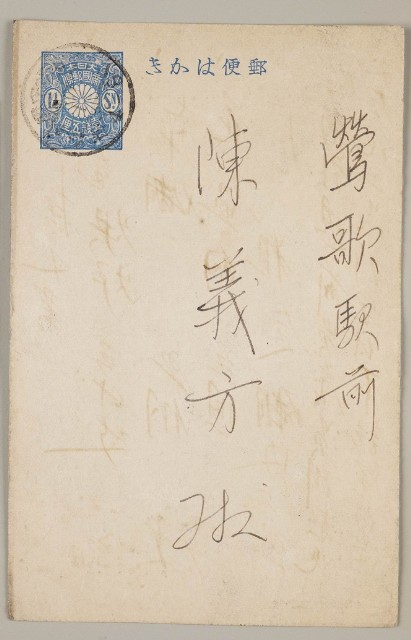 郵便はかき
鶯歌駅前
陳義方